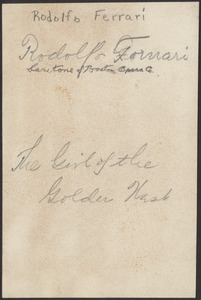 Rodolfo Ferrari
Rodolfo Fornari
Baritone of Boston Opera C.
The Girl of the
Golden West